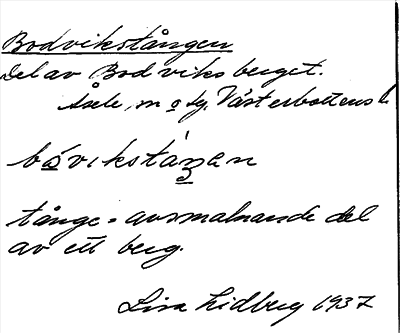 Bodvikstången
Del av Bodviksberget.
Åsele, m o sg. Västerbottens l.
bóvikstáŋan
tånge = avsmalnande del
av ett berg.
Lisa Lidberg 1937